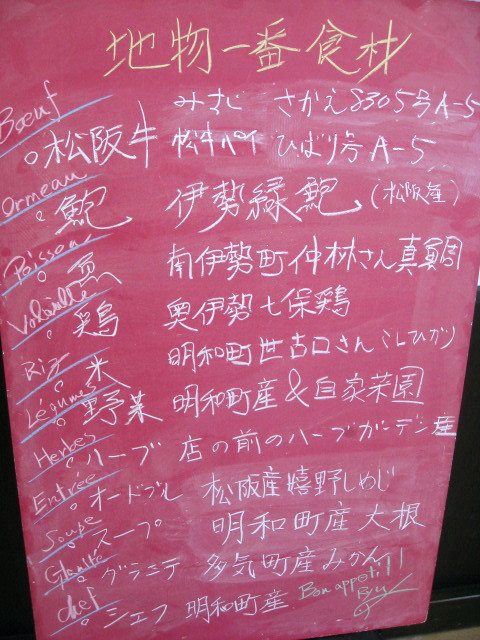 地物一番食材
Bœuf
みすじ さかえ8305号A-5
。松阪牛 松牛パイ ひばり号A-5
Ormeau
。鮑 伊勢緑鮑(松阪産)
Poisson
。魚 南伊勢町仲林さん真鯛
Volaille
。鶏 奥伊勢七保鶏
Riz
。米 明和町世古口さんこしひかり
Légumes
。野菜 明和町産&自家菜園
Herbes
。ハーブ 店の前のハーブガーデン産
Entrée
。オードブル 松阪産嬉野しめじ
Soupe
。スープ 明和町産大根
Granité
。グラニテ 多気町産みかん
chef
。シェフ 明和町産 Bon appetit!!